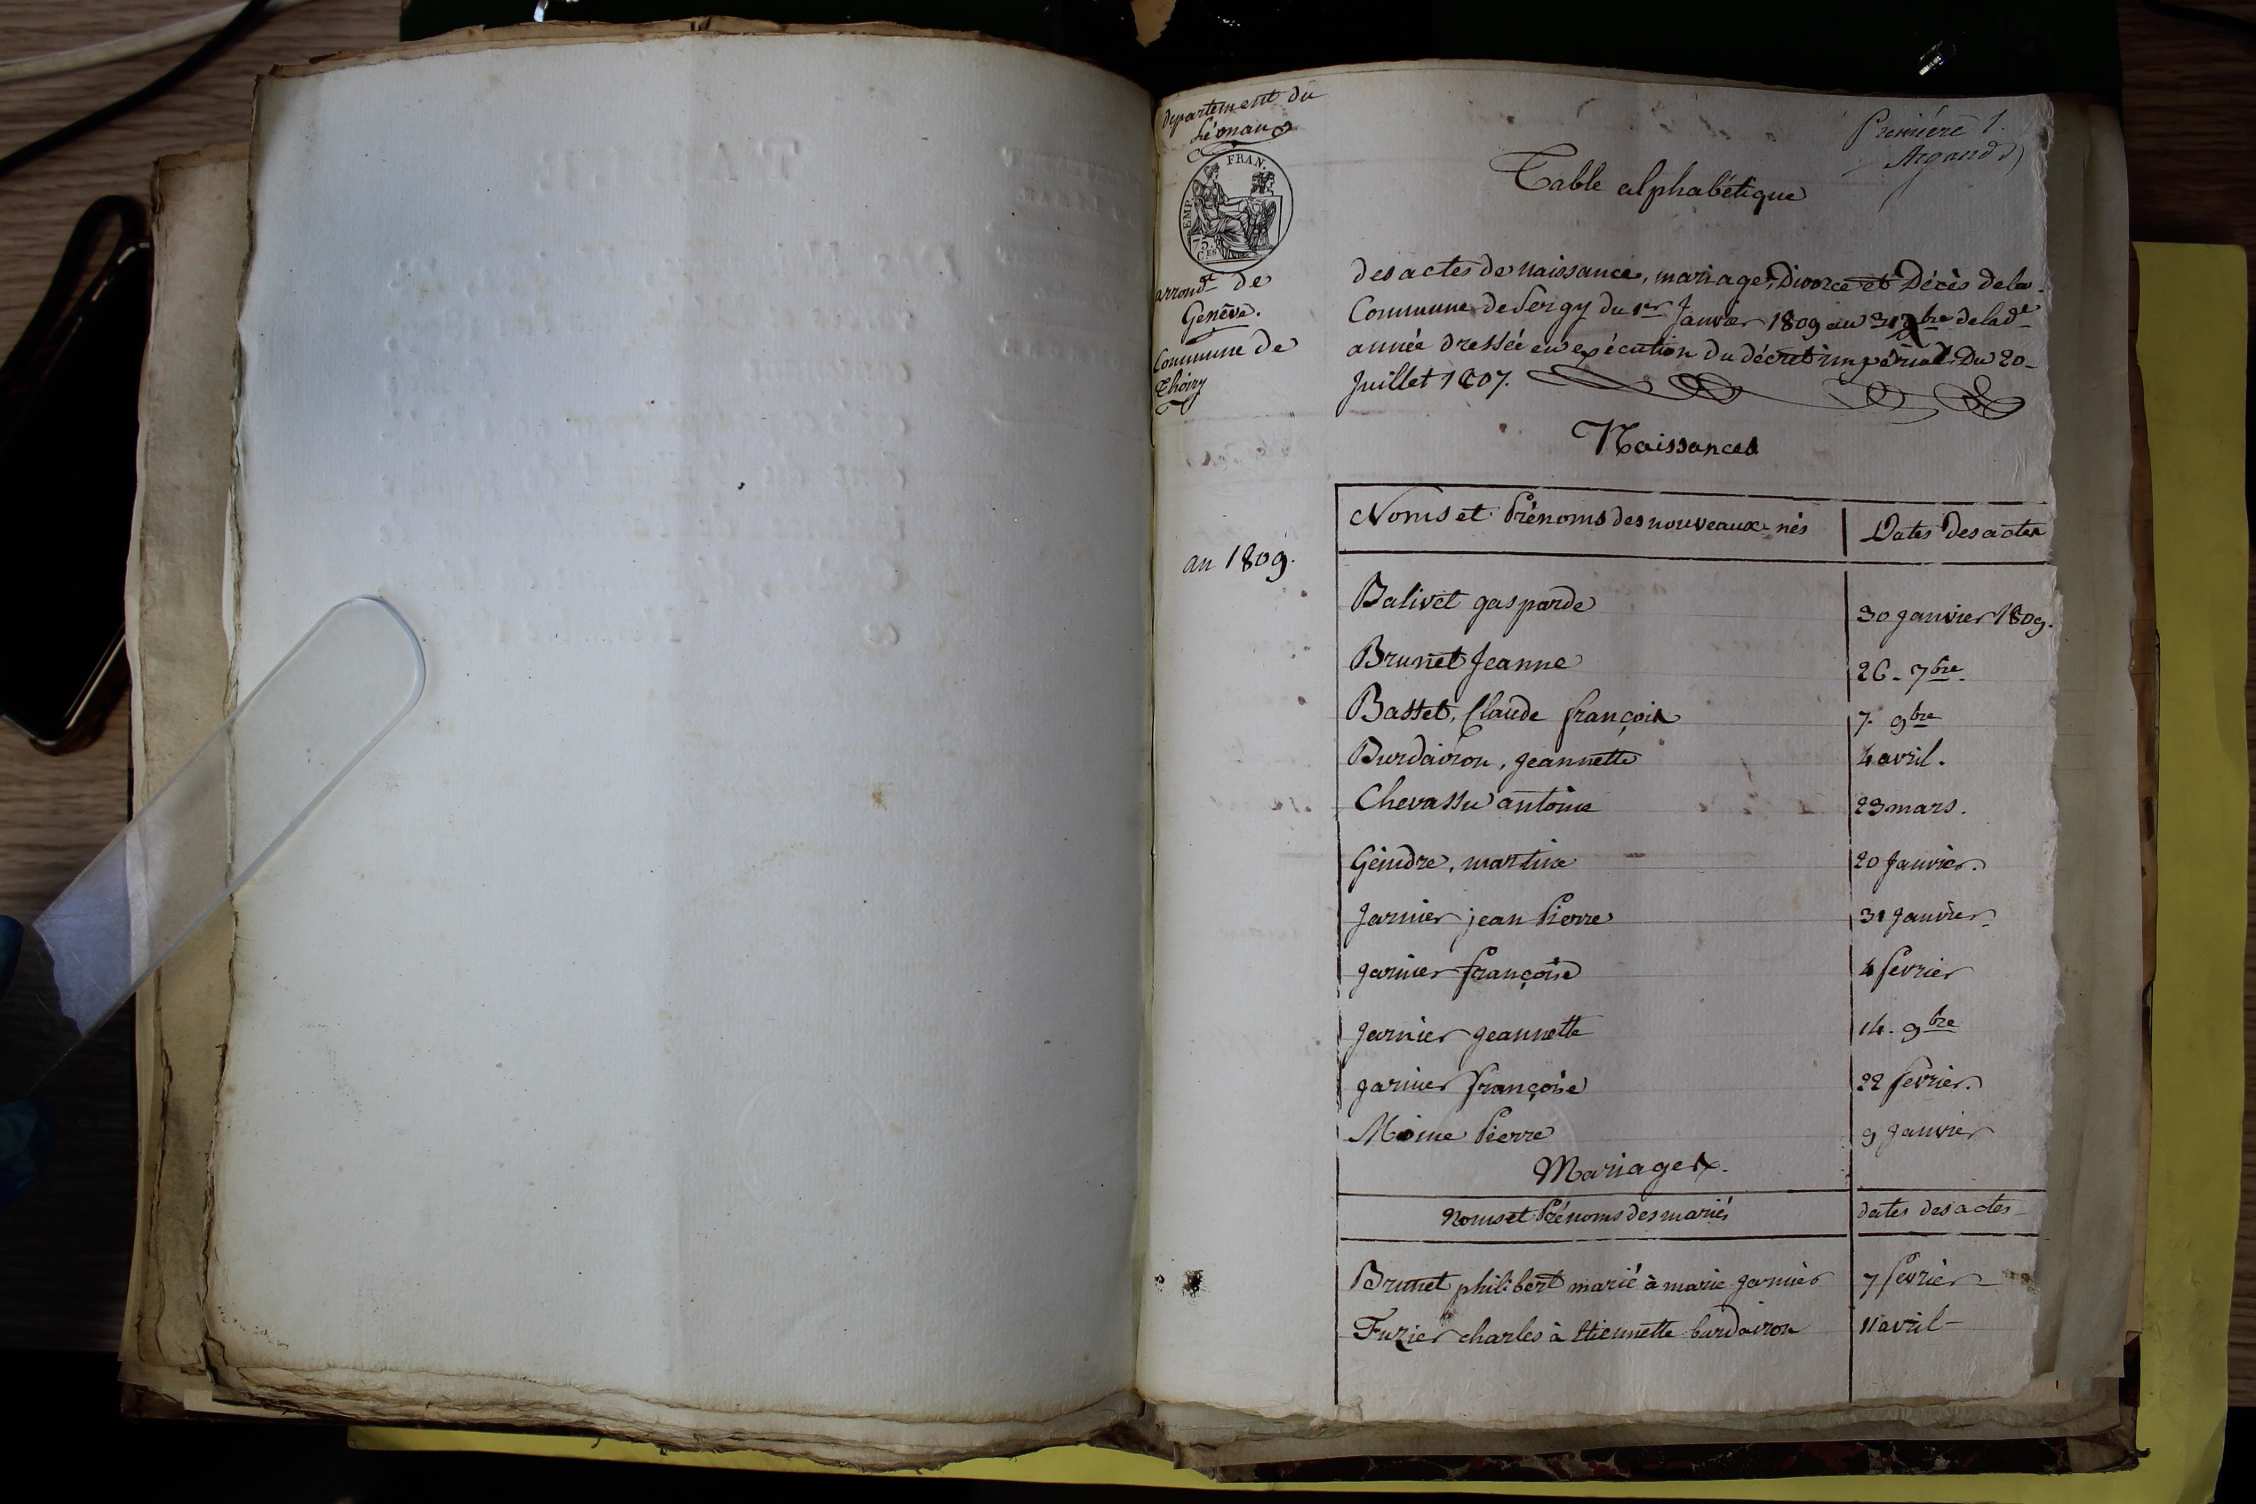 departement du
Léman
EMP. FRAN.
75.
CES
arrondt de
Genève.
Commune de
Thoiry
Première 1.
Argand
Table alphabétique
des actes de naissance, mariage, Divorce et Décès de la
Commune de Sergy du 1er Janvier 1809 au 31 Xbre de lade
année dressée en exécution du décret impérial, Du 20
Juillet 1807.
Naissances
an 1809.
Noms et Prénoms des nouveaux-nés Dates des actes
Balivet gasparde 30 janvier 1809.
Brunet Jeanne 26 - 7bre
Basset, Claude françois 7. 9bre
Burdairon, jeannette 4 avril.
Chevassu antoine 23 mars.
Geindre, martine 20 Janvier.
Garnier jean Pierre 31 Janvier
garnier françoise 4 fevrier
garnier jeannette 14. 9bre
garnier françoise 22 fevrier.
Moine Pierre 9 Janvier
Mariages.
Noms et Prénoms des mariés dates des actes
Brunet philibert marié à marie garnier 7 fevrier
Fuzier charles à Etiennette burdairon 11 avril